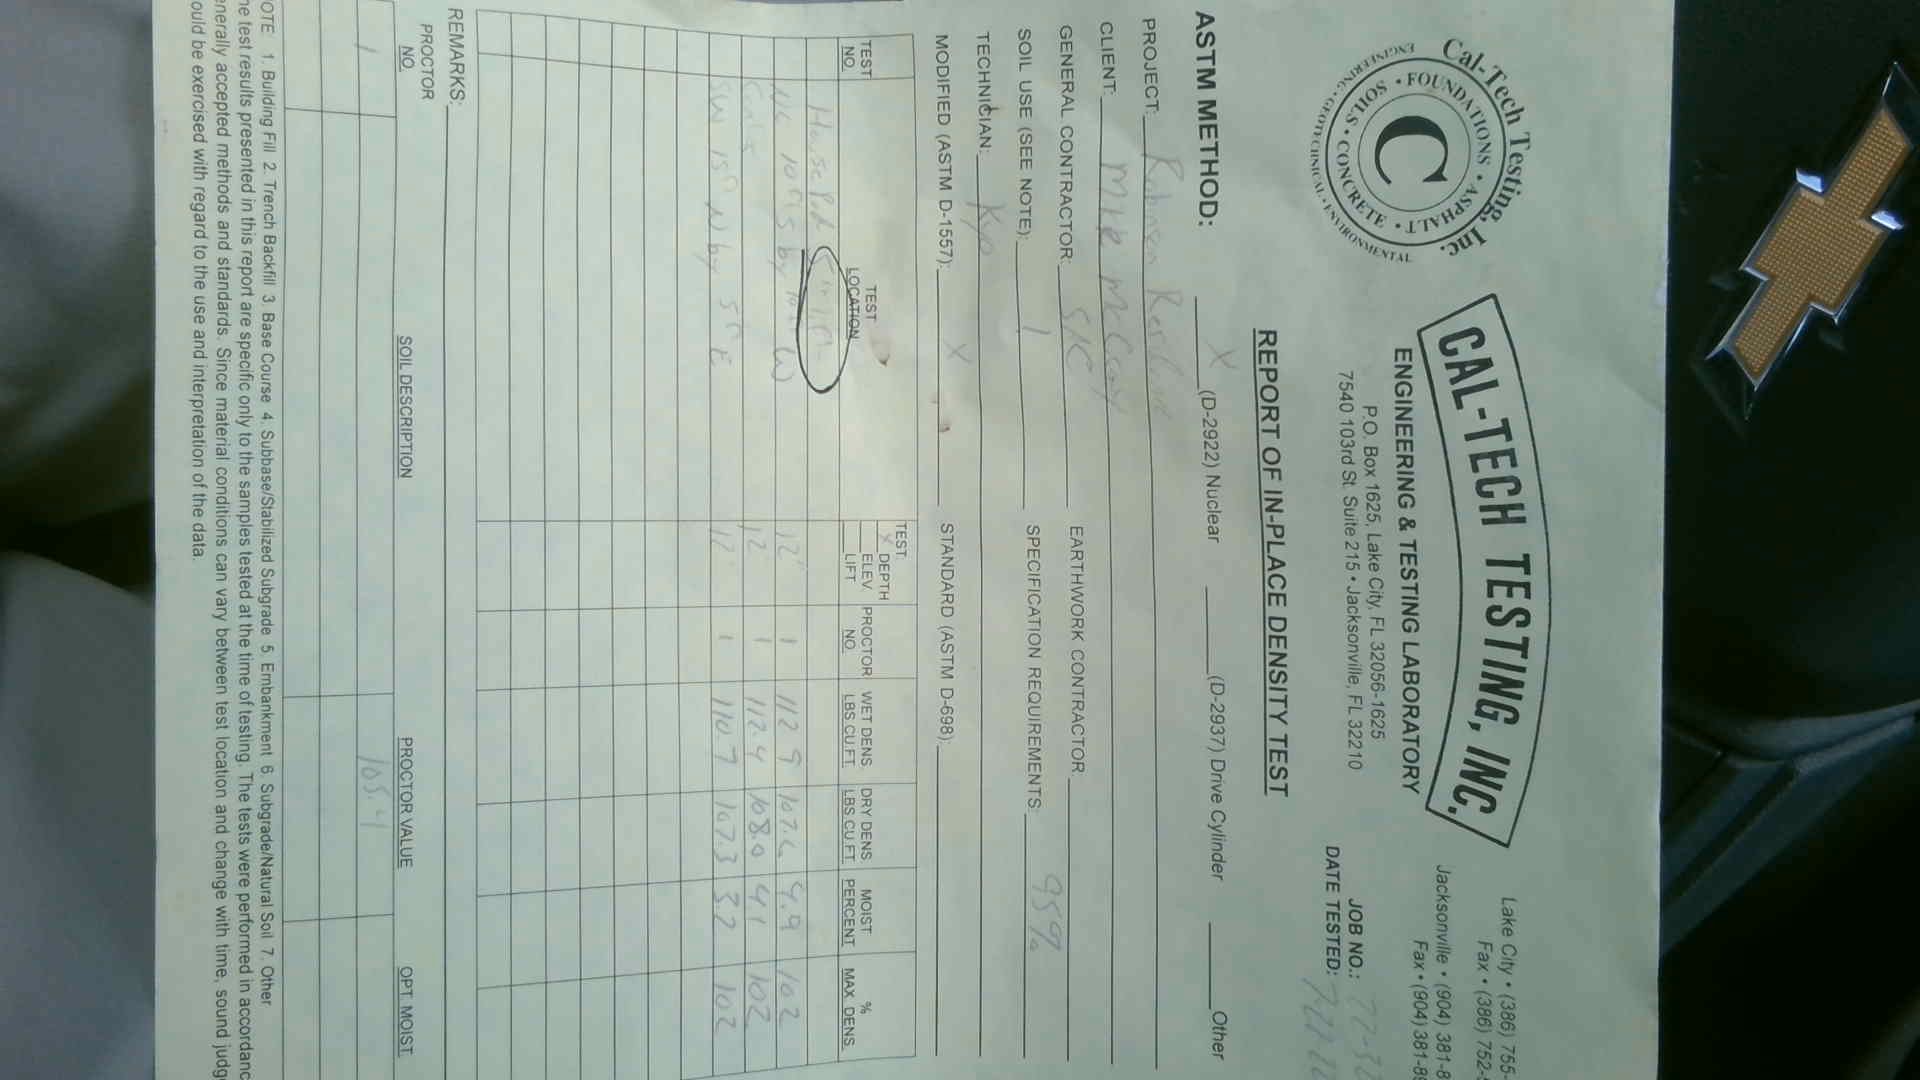 Cal-Tech Testing, Inc.
• FOUNDATIONS • ASPHALT • CONCRETE • SOILS
ENGINEERING • GEOTECHNICAL • ENVIRONMENTAL
C
CAL-TECH TESTING, INC.
ENGINEERING & TESTING LABORATORY
P.O. Box 1625, Lake City, FL 32056-1625
7540 103rd St. Suite 215 • Jacksonville, FL 32210
Lake City • (386) 755-
Fax • (386) 752-
Jacksonville • (904) 381-8
Fax • (904) 381-89
JOB NO.:
DATE TESTED:
REPORT OF IN-PLACE DENSITY TEST
ASTM METHOD: X (D-2922) Nuclear (D-2937) Drive Cylinder Other
PROJECT: Robinson
CLIENT: Mike McCoy
GENERAL CONTRACTOR: S/C EARTHWORK CONTRACTOR:
SOIL USE (SEE NOTE): 1 SPECIFICATION REQUIREMENTS: 95%
TECHNICIAN:
MODIFIED (ASTM D-1557): X STANDARD (ASTM D-698):
TEST NO. TEST LOCATION TEST: X DEPTH ELEV. LIFT PROCTOR NO. WET DENS. LBS CU FT. DRY DENS LBS CU FT. MOIST PERCENT % MAX. DENS.
House Pad
12" 1 112 9 107.6 4.9 102
12 1 112.4 108.0 4 1 102
SW 15' N by 5' E 12" 1 110 7 107.3 3 2 102
REMARKS:
PROCTOR NO. SOIL DESCRIPTION PROCTOR VALUE OPT. MOIST.
1 105.4
OTE 1. Building Fill 2. Trench Backfill 3. Base Course 4. Subbase/Stabilized Subgrade 5. Embankment 6. Subgrade/Natural Soil 7. Other
he test results presented in this report are specific only to the samples tested at the time of testing. The tests were performed in accordanc
enerally accepted methods and standards. Since material conditions can vary between test location and change with time, sound judg
ould be exercised with regard to the use and interpretation of the data.